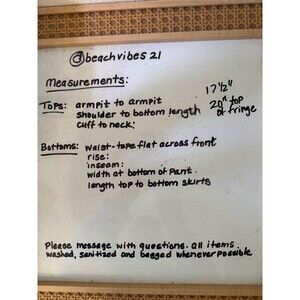 @beachvibes 21
Measurements:
Tops: armpit to armpit 17 1/2"
shoulder to bottom length 20" top of fringe
cuff to neck:
Bottoms: waist-tape flat across front
rise:
inseam:
width at bottom of pant.
length top to bottom skirts
Please message with questions. all items
washed, sanitized and bagged whenever possible